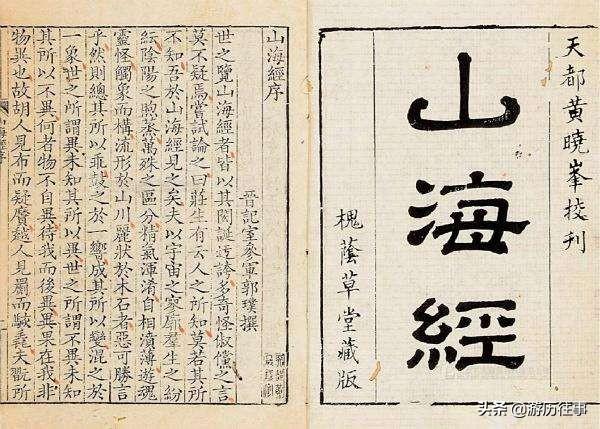 天都黃曉峯挍刊
山海經
槐蔭草堂藏版
山海經序
晉記室參軍郭璞撰
世之覽山海經者皆以其閎誕迂誇多奇怪俶儻之言
莫不疑焉嘗試論之曰莊生有云人之所知莫若其所
不知吾於山海經見之矣夫以宇宙之寥廓羣生之紛
紜陰陽之煦蒸萬殊之區分精氣渾淆自相濆薄遊魂
靈怪觸象而構流形於山川麗狀於木石者惡可勝言
乎然則總其所以乖鼓之於一響成其所以變混之於
一象世之所謂異未知其所以異世之所謂不異未知
其所以不異何者物不自異待我而後異異果在我非
物異也故胡人見布而疑黂越人見罽而駭毳夫翫所
头条 @游历往事